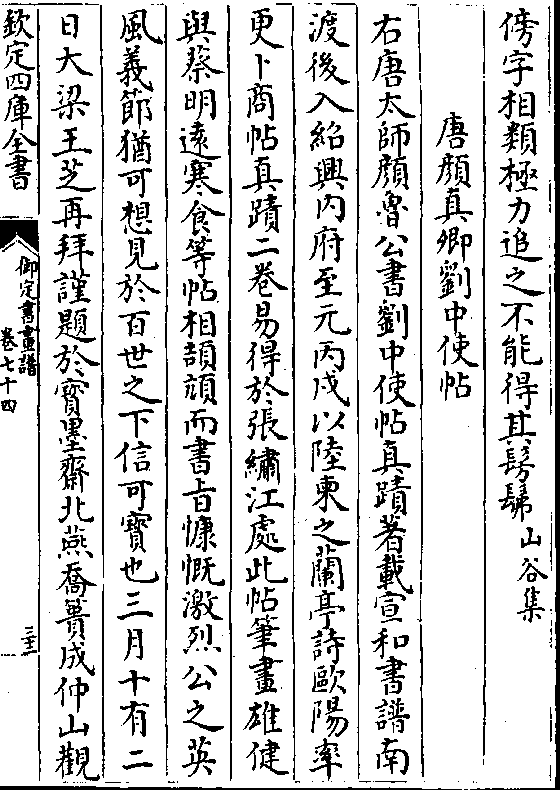 傍字相類極力追之不能得其髣髴山谷集
唐顔真卿劉中使帖
右唐太師顔魯公書劉中使帖真蹟著載宣和書譜南
渡後入紹興内府至元丙戌以陸柬之蘭亭詩歐陽率
更卜商帖真蹟二卷易得於張繡江處此帖筆畫雄健
與蔡明逺寒食等帖相頡頏而書旨慷慨激烈公之英
風義節猶可想見於百世之下信可寳也三月十有二
日大梁王芝再拜謹題於寳墨齋北燕喬簣成仲山觀
欽定四庫全書
御定書畫譜
卷七十四
三十三